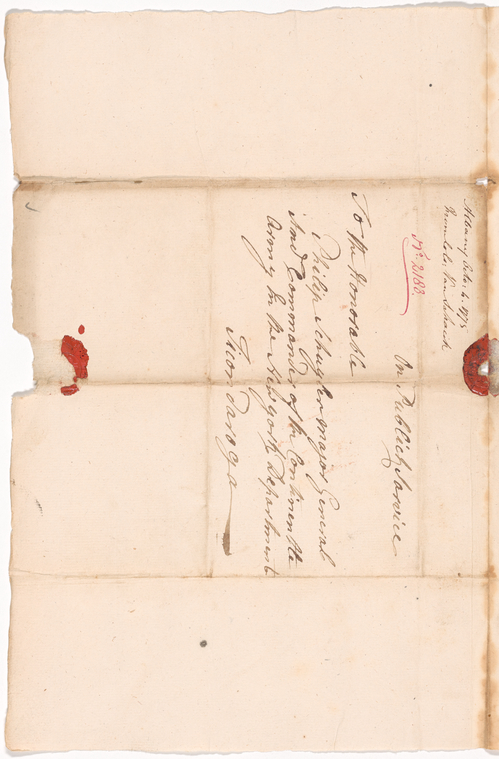 Albany Octo. 4. 1775
from Colo. Van Schaick
No. 2188.
On Publick Service
To the Honorable
Philip Schuyler major General
And Commander of the Continental
Army In the New york Department
Ticondaroga